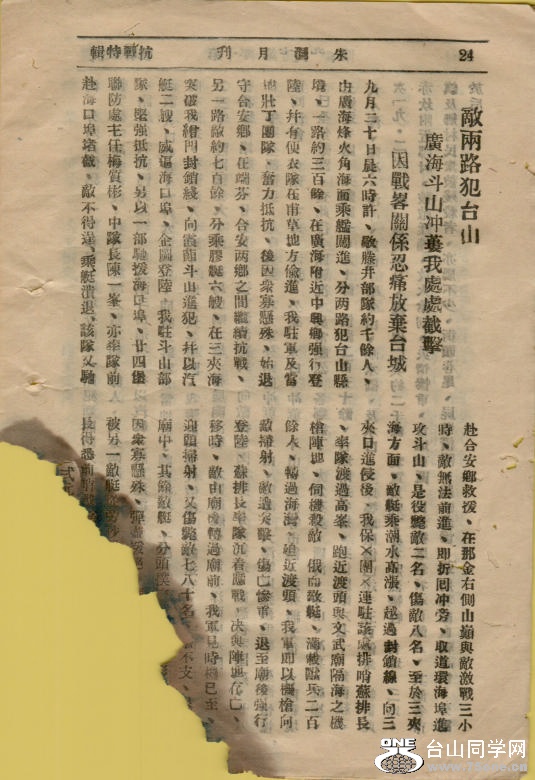 24
朱洞月刊
抗戰特輯
敵兩路犯台山
廣海斗山冲蔞我處處截擊
因戰畧關係忍痛放棄台城
九月二十日晨六時許、敵藤井部隊約千餘人、
由廣海烽火角海面乘艦闖進、分两路犯台山縣
境、一路約三百餘、在廣海附近中興鄉强行登
陸、幷有便衣隊在甫草地方偷進、我駐軍及當
地壯丁團隊、奮力抵抗、後因衆寡懸殊、始退
守台安鄉、在端芬、合安两鄉之間繼續抗戰、
另一路敵約七百餘、分乘膠艇六艘、在三夾海
突破我封鎖綫、向斗山進犯、幷以汽
艇二艘、威逼海口埠、企圖登陸、我駐斗山部
隊、堅强抵抗、另以一部馳援海口埠、廿四
聯防處主任梅質彬、中隊長陳一峯、亦率隊前
赴海口埠堵截、敵不得逞、乘艇潰退、該隊又馳
赴合安鄉救援、在那金右側山巔與敵激戰三小
時、敵無法前進、即折囘冲旁、取道環海埠進
攻斗山、是役斃敵二名、傷敵八名、至於三夾
海方面、敵艇乘潮水高漲、越過封鎖線、向三
夾口進侵後、我保×團×連駐該處排哨蘇排長
、率隊渡過高峯、跑近渡頭與文武廟隔海之機
槍陣地、伺機殺敵、俄而敵艇、滿載獸兵二百
餘人、轉過海灣、迫近渡頭、我軍即以機槍向
敵掃射、敵遭突擊、傷亡慘重、退至廟後强行
登陸、蘇排長率隊沉着應戰、决與陣地存亡、
移時、敵由廟後轉過廟前、我軍見時機已至、
迎頭掃射、又傷斃敵七八十名、不支、
廟中、其餘敵艇、分頭
因衆寡懸殊、彈
被另一敵艇
長得悉前哨
台山同学网
ONE